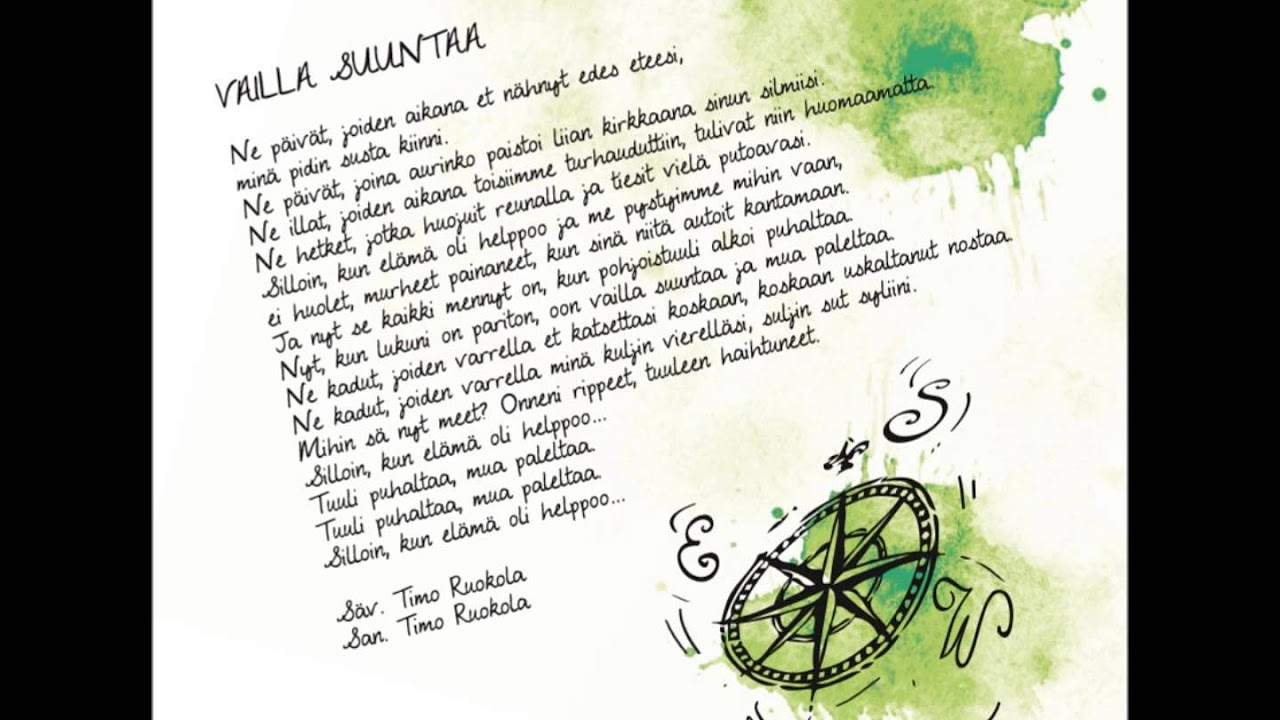 VAILLA SUUNTAA
Ne päivät, joiden aikana et nähnyt edes eteesi,
minä pidin susta kiinni.
Ne päivät, joina aurinko paistoi liian kirkkaana sinun silmiisi.
Ne illat, joiden aikana toisiimme turhauduttiin, tulivat niin huomaamatta.
Ne hetket, jotka huojuit reunalla ja tiesit vielä putoavasi.
Silloin, kun elämä oli helppoo ja me pystyimme mihin vaan,
ei huolet, murheet painaneet, kun sinä niitä autoit kantamaan.
Ja nyt se kaikki mennyt on, kun pohjoistuuli alkoi puhaltaa.
Nyt, kun lukuni on pariton, oon vailla suuntaa ja mua paleltaa.
Ne kadut, joiden varrella et katsettasi koskaan, koskaan uskaltanut nostaa.
Ne kadut, joiden varrella minä kuljin vierelläsi, suljin sut syliini.
Mihin sä nyt meet? Onneni rippeet, tuuleen haihtuneet.
Silloin, kun elämä oli helppoo...
Tuuli puhaltaa, mua paleltaa.
Tuuli puhaltaa, mua paleltaa.
Silloin, kun elämä oli helppoo...
Säv. Timo Ruokola
San. Timo Ruokola
S
E
W